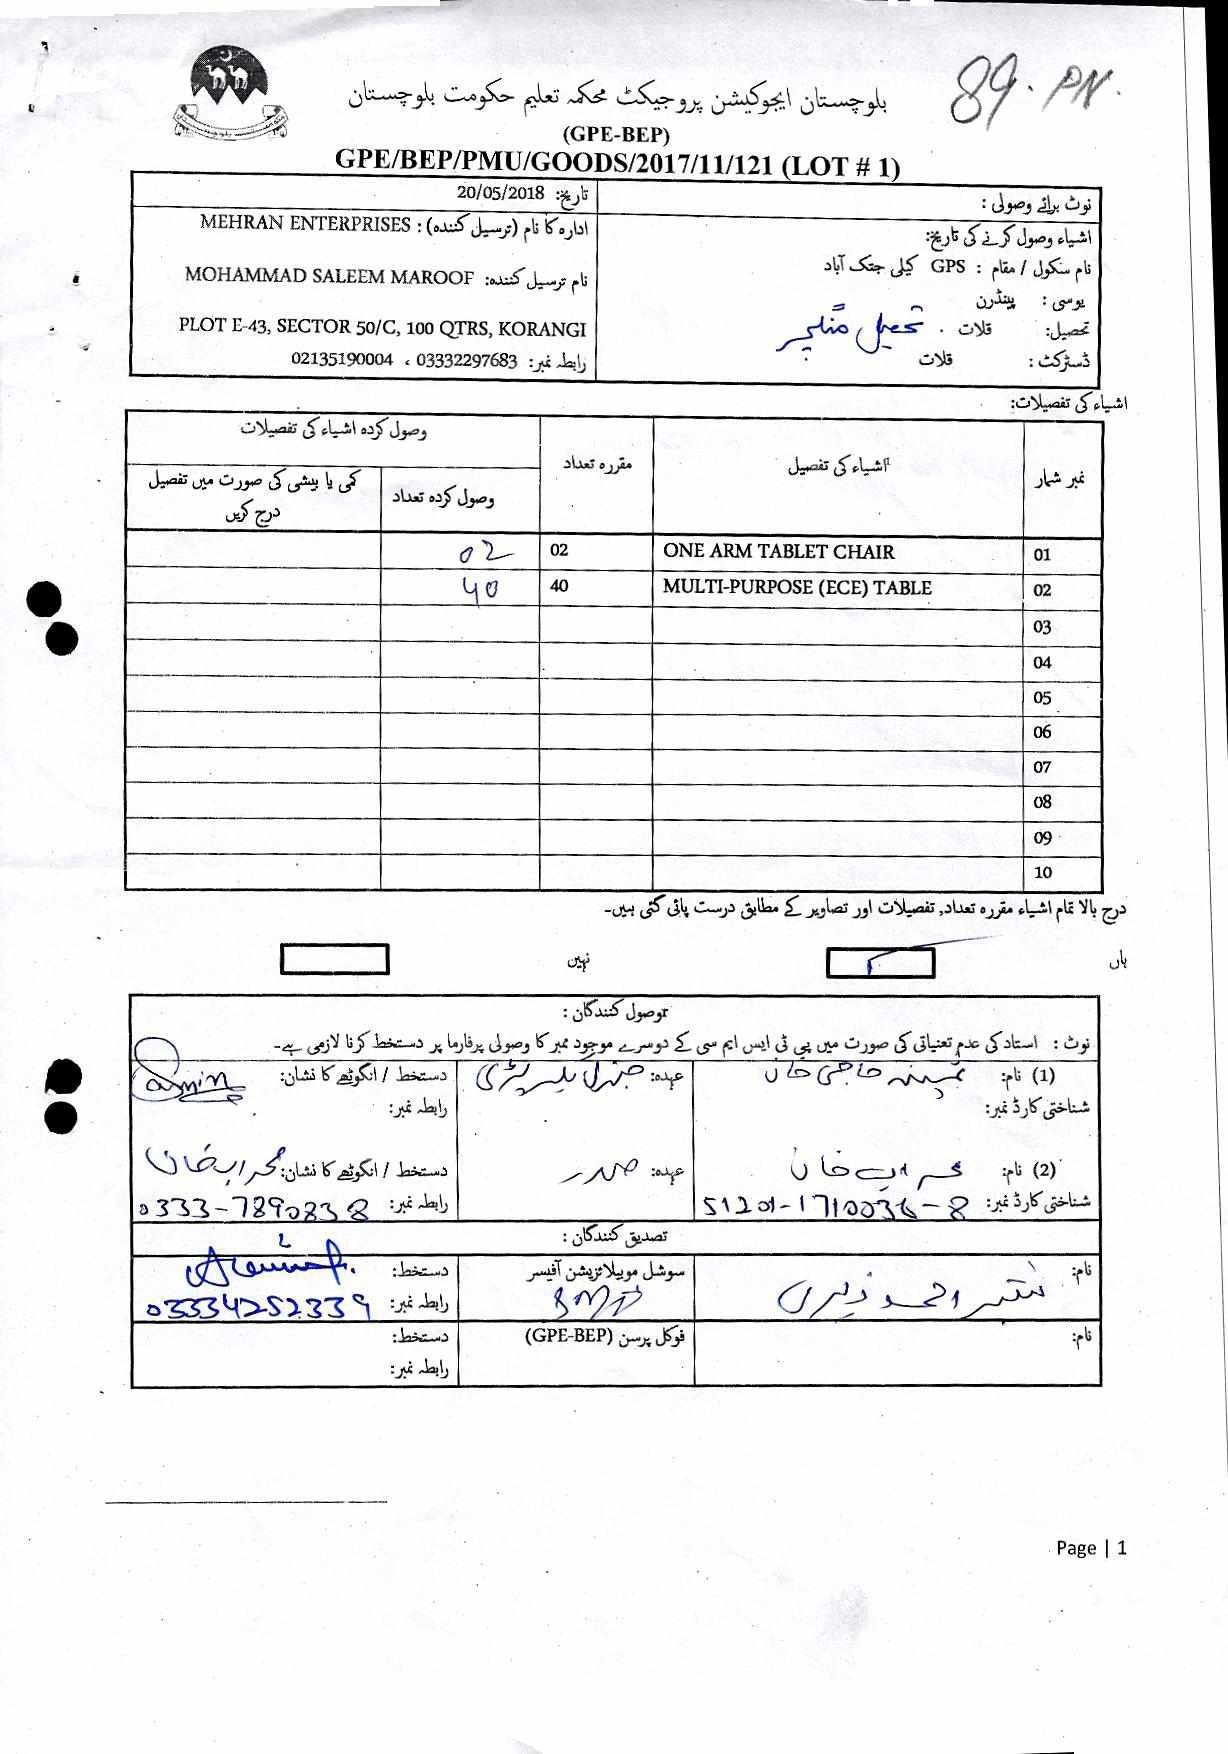 89. PN.
بلوچستان ایجوکیشن پروجیکٹ محکمہ تعلیم حکومت بلوچستان
(GPE-BEP)
GPE/BEP/PMU/GOODS/2017/11/121 (LOT # 1)
نوٹ برائے وصولی :
تاریخ: 20/05/2018
اشیاء وصول کرنے کی تاریخ:
ادارہ کا نام (ترسیل کنندہ) : MEHRAN ENTERPRISES
نام سکول / مقام : GPS کیلی جتک آباد
نام ترسیل کنندہ: MOHAMMAD SALEEM MAROOF
یوسی : پینڈرن
تحصیل: قلات . تحصیل منگچر
PLOT E-43, SECTOR 50/C, 100 QTRS, KORANGI
ڈسٹرکٹ : قلات
رابطہ نمبر: 03332297683 ، 02135190004
اشیاء کی تفصیلات:
نمبر شمار
اشیاء کی تفصیل
مقررہ تعداد
وصول کردہ اشیاء کی تفصیلات
وصول کردہ تعداد
کمی یا بیشی کی صورت میں تفصیل
درج کریں
01 ONE ARM TABLET CHAIR 02 02
02 MULTI-PURPOSE (ECE) TABLE 40 40
03
04
05
06
07
08
09
10
درج بالا تمام اشیاء مقررہ تعداد, تفصیلات اور تصاویر کے مطابق درست پائی گئی ہیں۔
ہاں
نہیں
وصول کنندگان :
نوٹ : استاد کی عدم تعنیاتی کی صورت میں پی ٹی ایس ایم سی کے دوسرے موجود ممبر کا وصولی پرفارما پر دستخط کرنا لازمی ہے۔
(1) نام: حاجی خان عہدہ: جنرل سیکرٹری دستخط / انگوٹھے کا نشان:
شناختی کارڈ نمبر: رابطہ نمبر:
(2) نام: محراب خان عہدہ: صدر دستخط / انگوٹھے کا نشان: محراب خان
شناختی کارڈ نمبر: 51201-1710036-8 رابطہ نمبر: 0333-7890838
تصدیق کنندگان :
نام: احمد سوشل موبیلائزیشن آفیسر دستخط:
رابطہ نمبر: 03334252339
نام: فوکل پرسن (GPE-BEP) دستخط:
رابطہ نمبر:
Page | 1